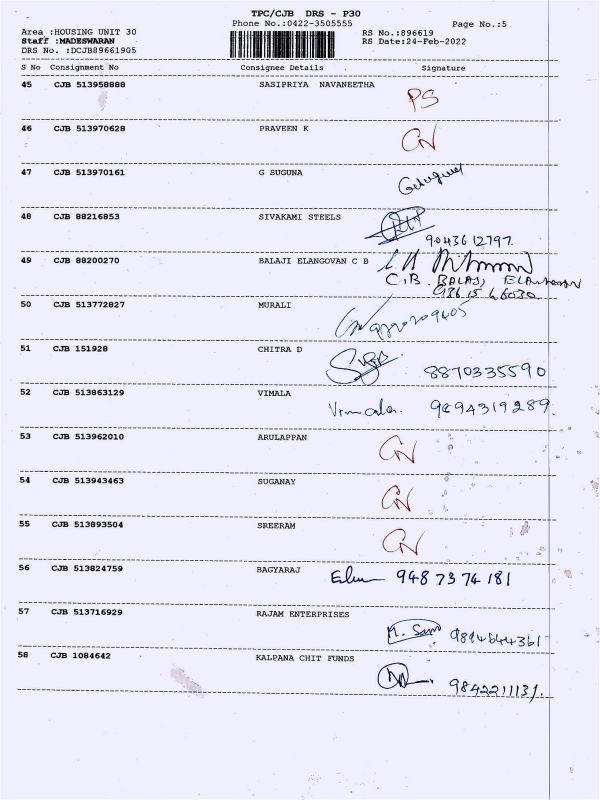 TPC/CJB DRS - P30
Phone No.:0422-3505555
Page No.:5
Area :HOUSING UNIT 30
Staff :MADESWARAN
DRS No. :DCJB89661905
RS No.:896619
RS Date:24-Feb-2022
S No Consignment No Consignee Details Signature
45 CJB 513958888 SASIPRIYA NAVANEETHA PS
46 CJB 513970628 PRAVEEN K CN
47 CJB 513970161 G SUGUNA
48 CJB 88216853 SIVAKAMI STEELS
9043612797.
49 CJB 88200270 BALAJI ELANGOVAN C B
C.B. BALAJI
50 CJB 513772827 MURALI
51 CJB 151928 CHITRA D 8870335590
52 CJB 513863129 VIMALA Vimala. 9894319289.
53 CJB 513962010 ARULAPPAN CN
54 CJB 513943463 SUGANAY CN
55 CJB 513893504 SREERAM CN
56 CJB 513824759 BAGYARAJ 948 73 74 181
57 CJB 513716929 RAJAM ENTERPRISES
9894644361
58 CJB 1084642 KALPANA CHIT FUNDS
9842211131.